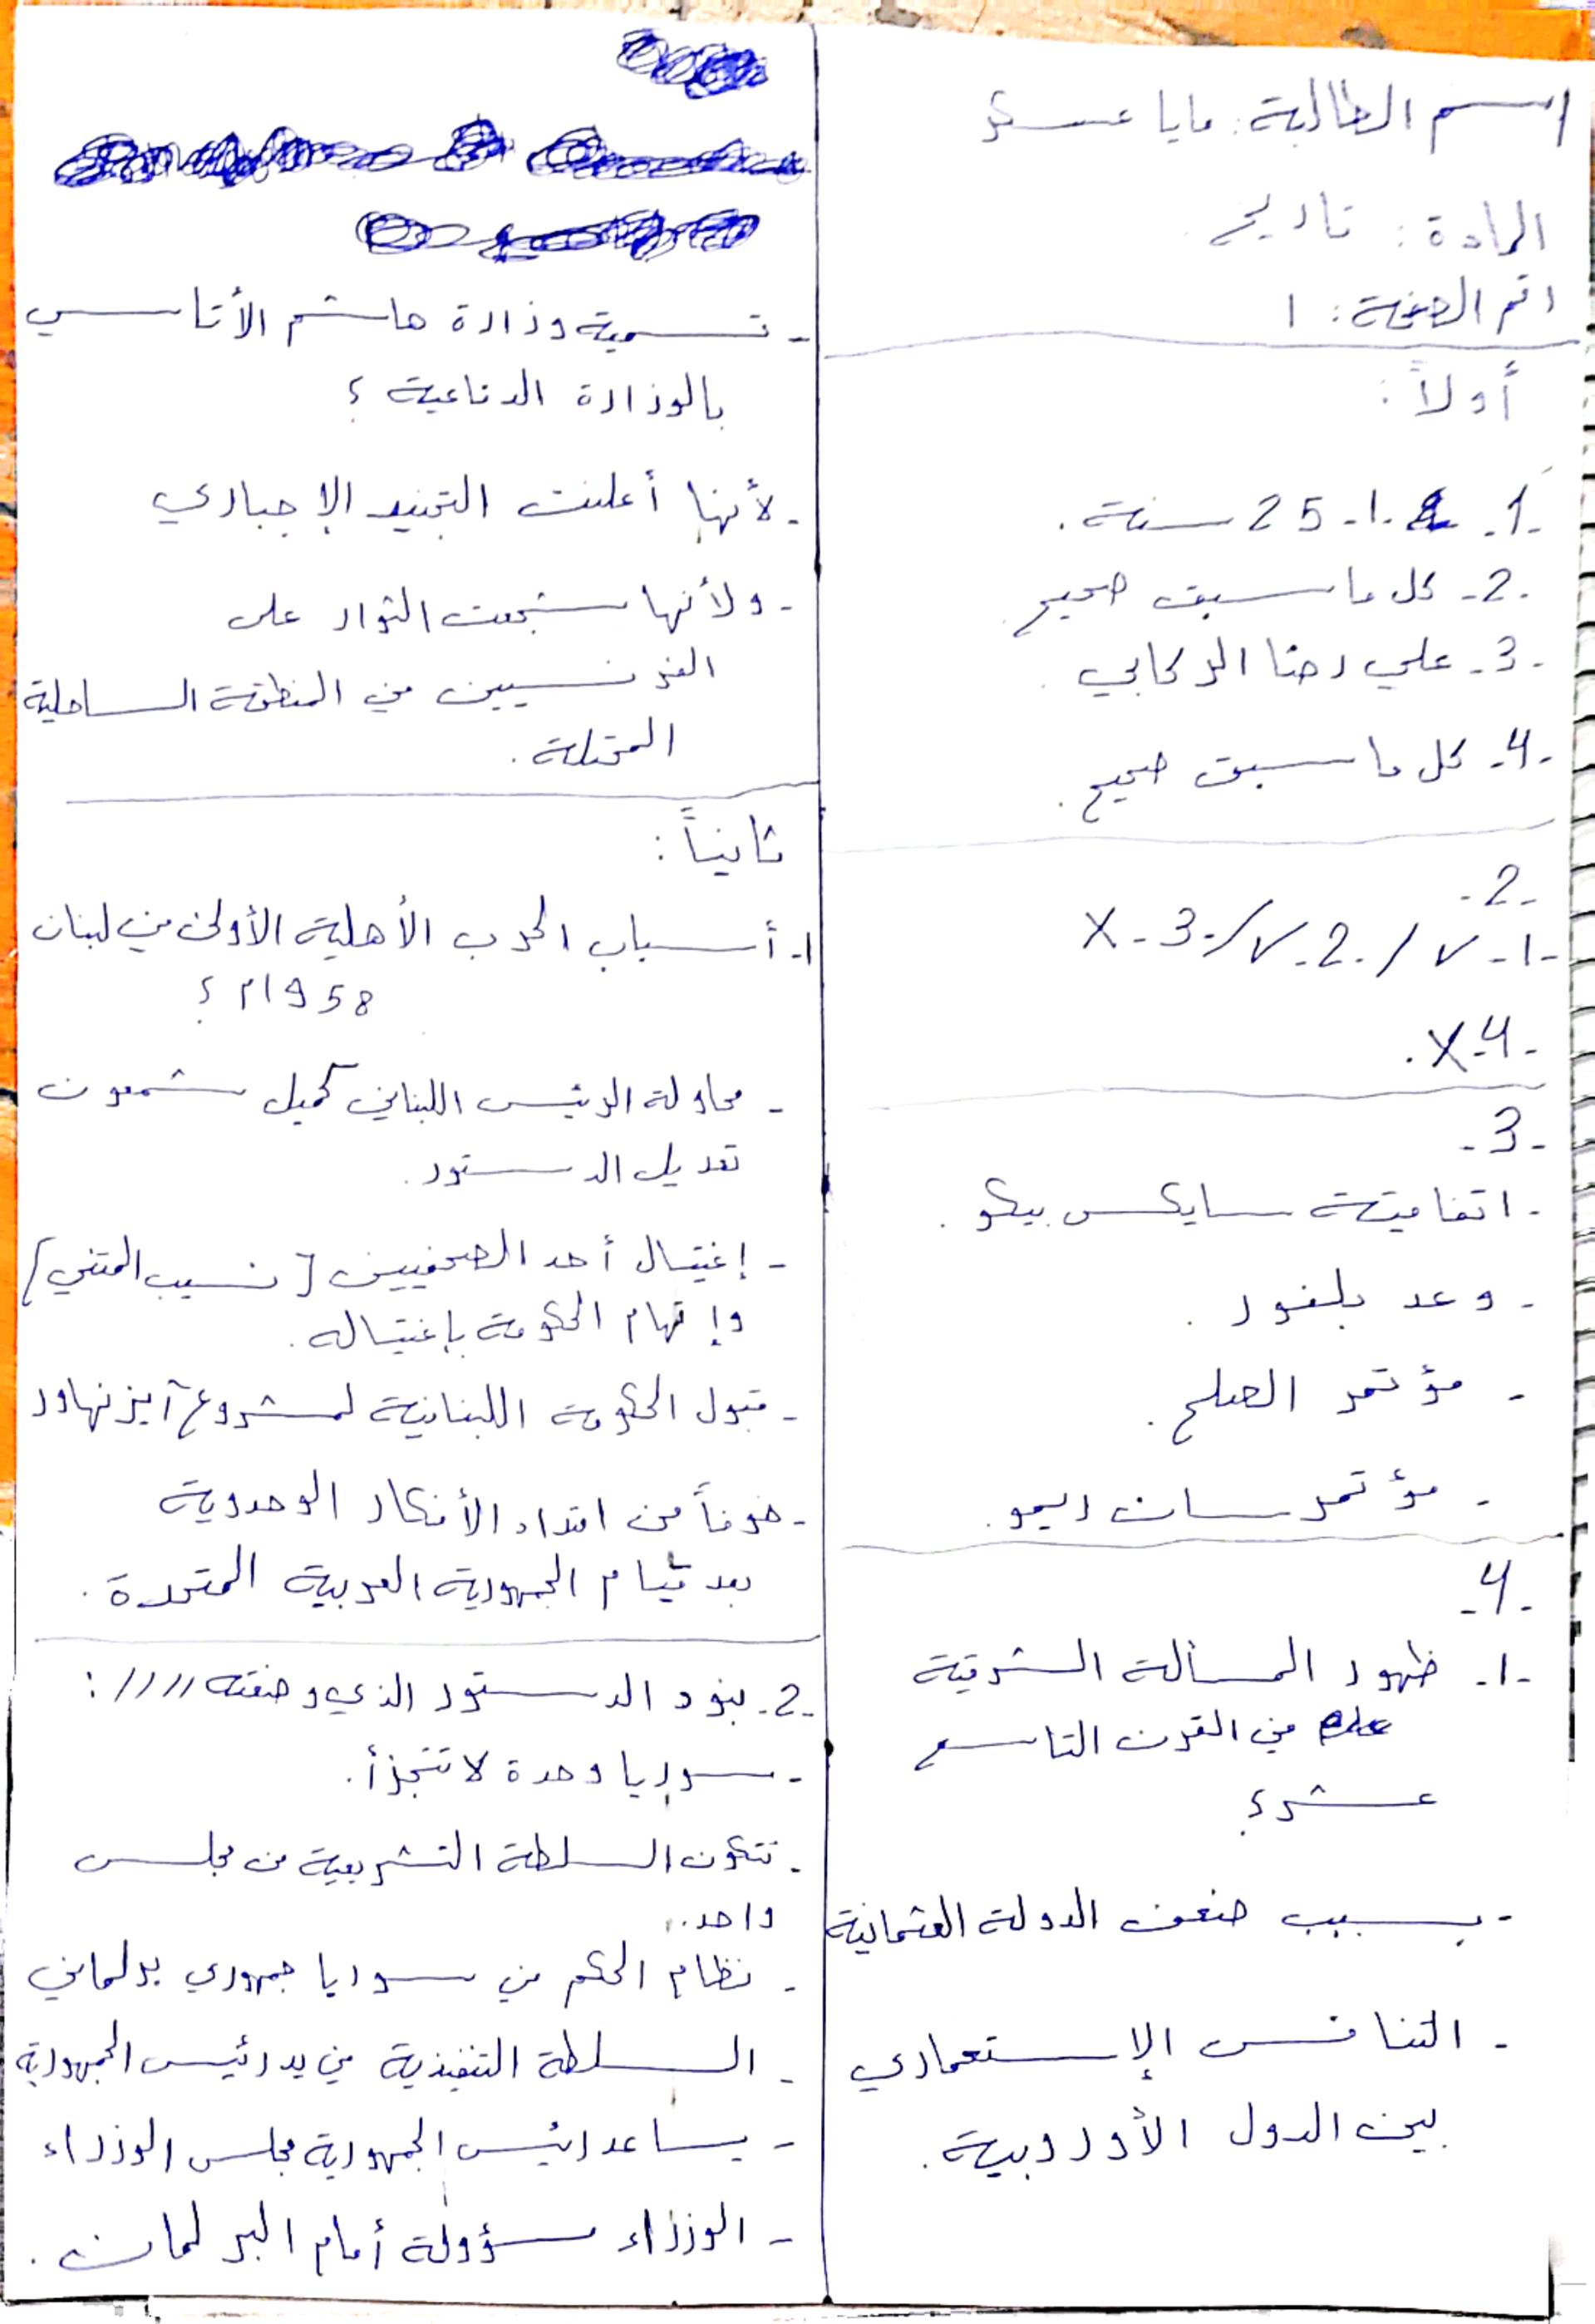 اسم الطالبة: مايا عسكر
المادة: تاريخ
رقم الصفحة: ١
أولاً:
1- 1- 25 سنة.
2- كل ما سبق صحيح.
3- علي رضا الركابي.
4- كل ما سبق صحيح.
2-
1- ✓ / 2- ✓ / 3- X
4- X.
3-
- اتفاقية سايكس بيكو.
- وعد بلفور.
- مؤتمر الصلح.
- مؤتمر سان ريمو.
4-
1- ظهور المسألة الشرقية
في القرن التاسع
عشر؟
- بسبب ضعف الدولة العثمانية
- التنافس الإستعماري
بين الدول الأوروبية.
- تسمية وزارة هاشم الأتاسي
بالوزارة الدفاعية؟
- لأنها أعلنت التجنيد الإجباري
- ولأنها شجعت الثوار على
الفرنسيين في المنطقة الساحلية
المحتلة.
ثانياً:
1- أسباب الحرب الأهلية الأولى في لبنان
1958م؟
- محاولة الرئيس اللبناني كميل شمعون
تعديل الدستور.
- إغتيال أحد الصحفيين [نسيب المتني]
وإتهام الحكومة بإغتياله.
- قبول الحكومة اللبنانية لمشروع آيزنهاور
- خوفاً من امتداد الأفكار الوحدوية
بعد قيام الجمهورية العربية المتحدة.
2- بنود الدستور الذي وضعته ////:
- سوريا وحدة لا تتجزأ.
- تتكون السلطة التشريعية من مجلس
واحد.
- نظام الحكم في سوريا جمهوري برلماني
- السلطة التنفيذية في يد رئيس الجمهورية
- يساعد رئيس الجمهورية مجلس الوزراء
- الوزراء مسؤولة أمام البرلمان.